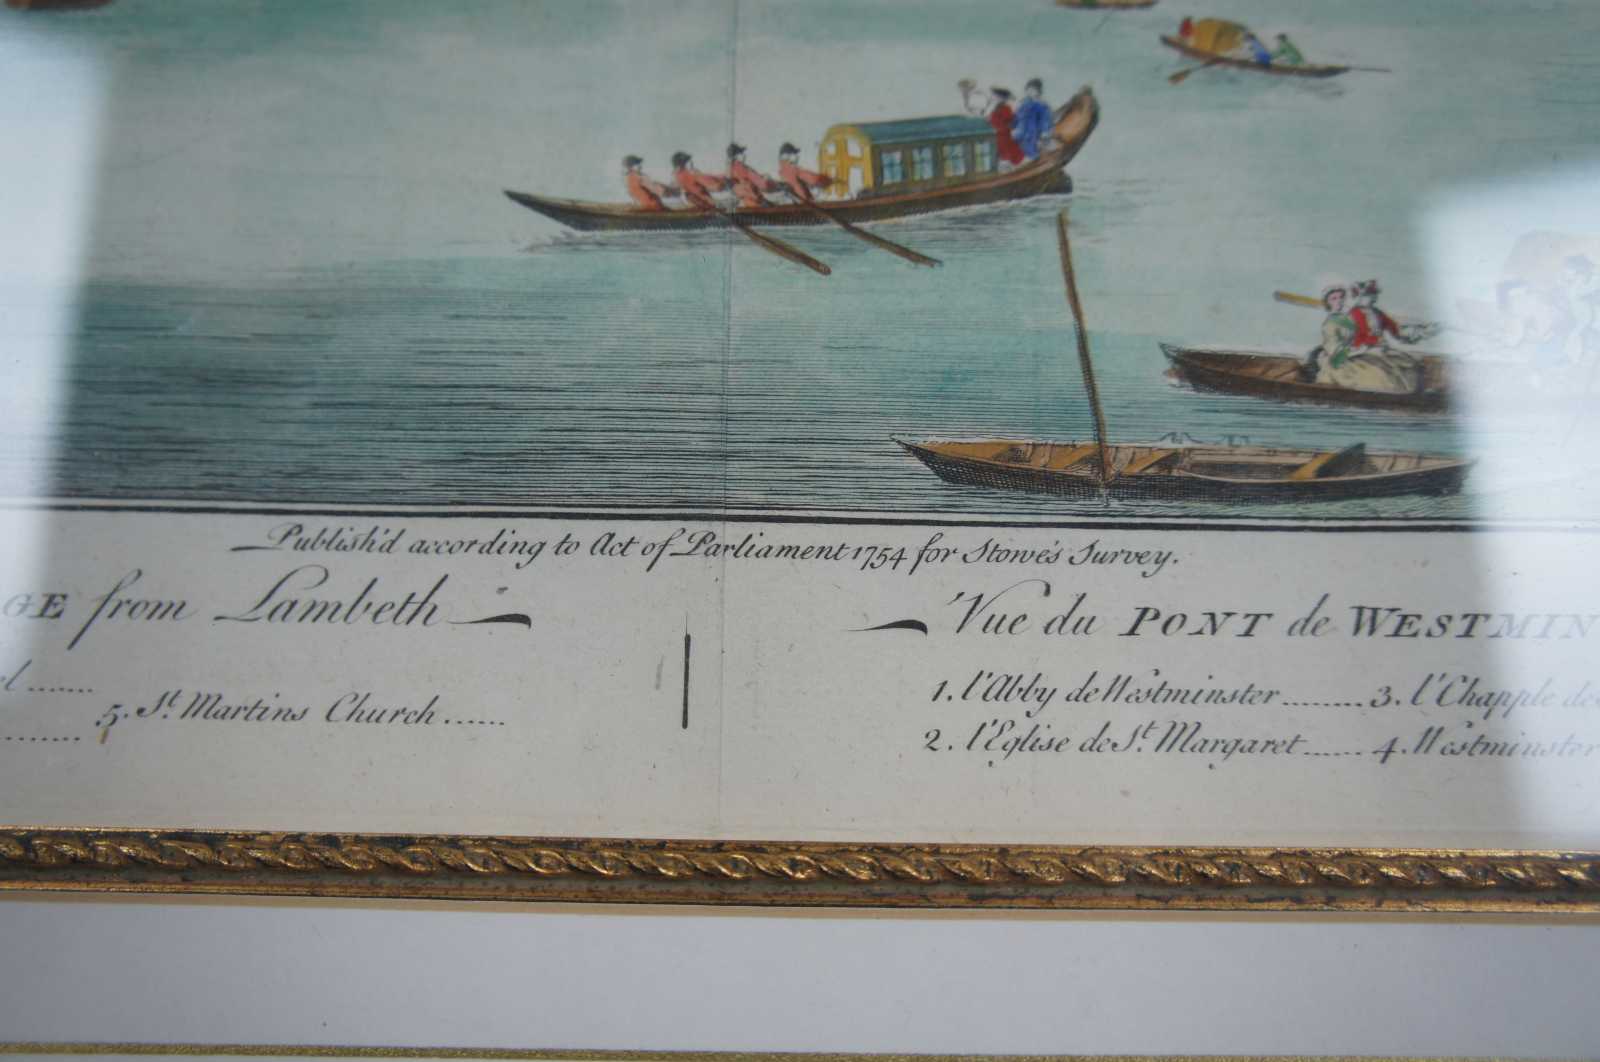 Publish'd according to Act of Parliament 1754 for Stowe's Survey.
GE from Lambeth
Vue du PONT de WESTMIN
5. St. Martins Church......
1. l'Abby de Westminster........ 3. l'Chapple de
2. l'Eglise de St. Margaret...... 4. Westminster